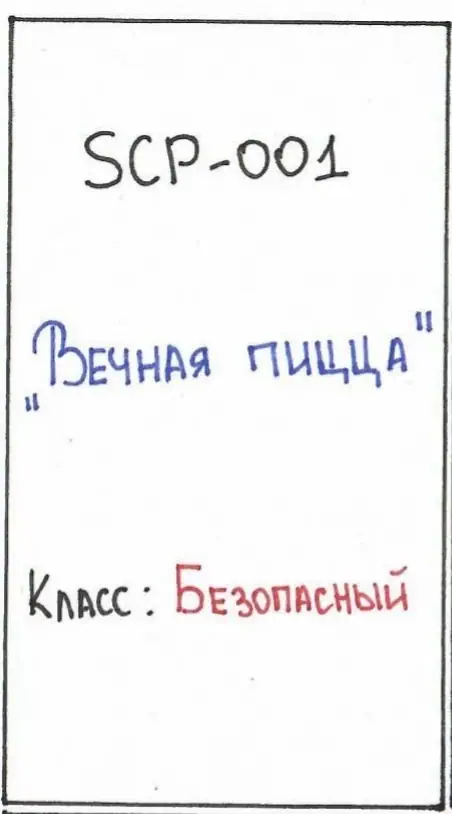 SCP-001
"Вечная пицца"
Класс: Безопасный